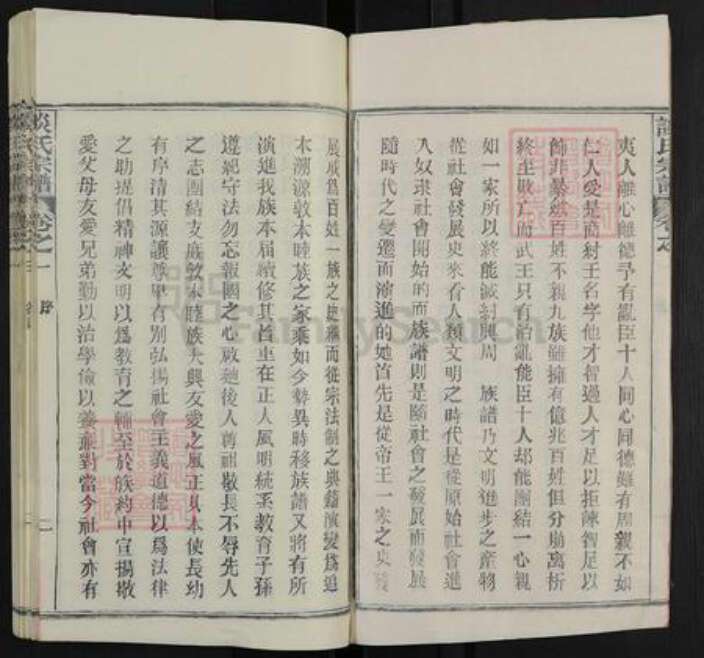 夷人離心離德予有亂臣十人同心同德雖有周親不如
仁人受是商紂王名字他才智過人才足以拒諫智足以
飾非暴虐百姓不親九族雖擁有億兆百姓但分崩离析
終至敗亡而武王只有治亂能臣十人却能團結一心親
如一家所以終能滅紂興周 族譜乃文明進步之產物
從社會發展史來看人類文明之時代是從原始社會進
入奴隶社會開始的而族譜則是隨社會之發展而發展
隨時代之變遷而演進的她首先是從帝王一家之史發
談氏宗譜 卷之一 序 二
展成爲百姓一族之史繼而從宗法制之典籍演變爲追
本溯源敦本睦族之家乘如今勢異時移族譜又將有所
演進我族本屆續修其旨重在正人風明統系教育子孫
遵紀守法勿忘報國之心啟迪後人尊祖敬長不辱先人
之志團結支庶敦本睦族大興友愛之風正其本使長幼
有序清其源讓尊卑有別弘揚社會主義道德以爲法律
之助提倡精神文明以爲教育之輔至於族約中宣揚敬
愛父母友愛兄弟勤以治學儉以養廉對當今社會亦有
談氏宗譜
卷之一
序
二
FamilySearch